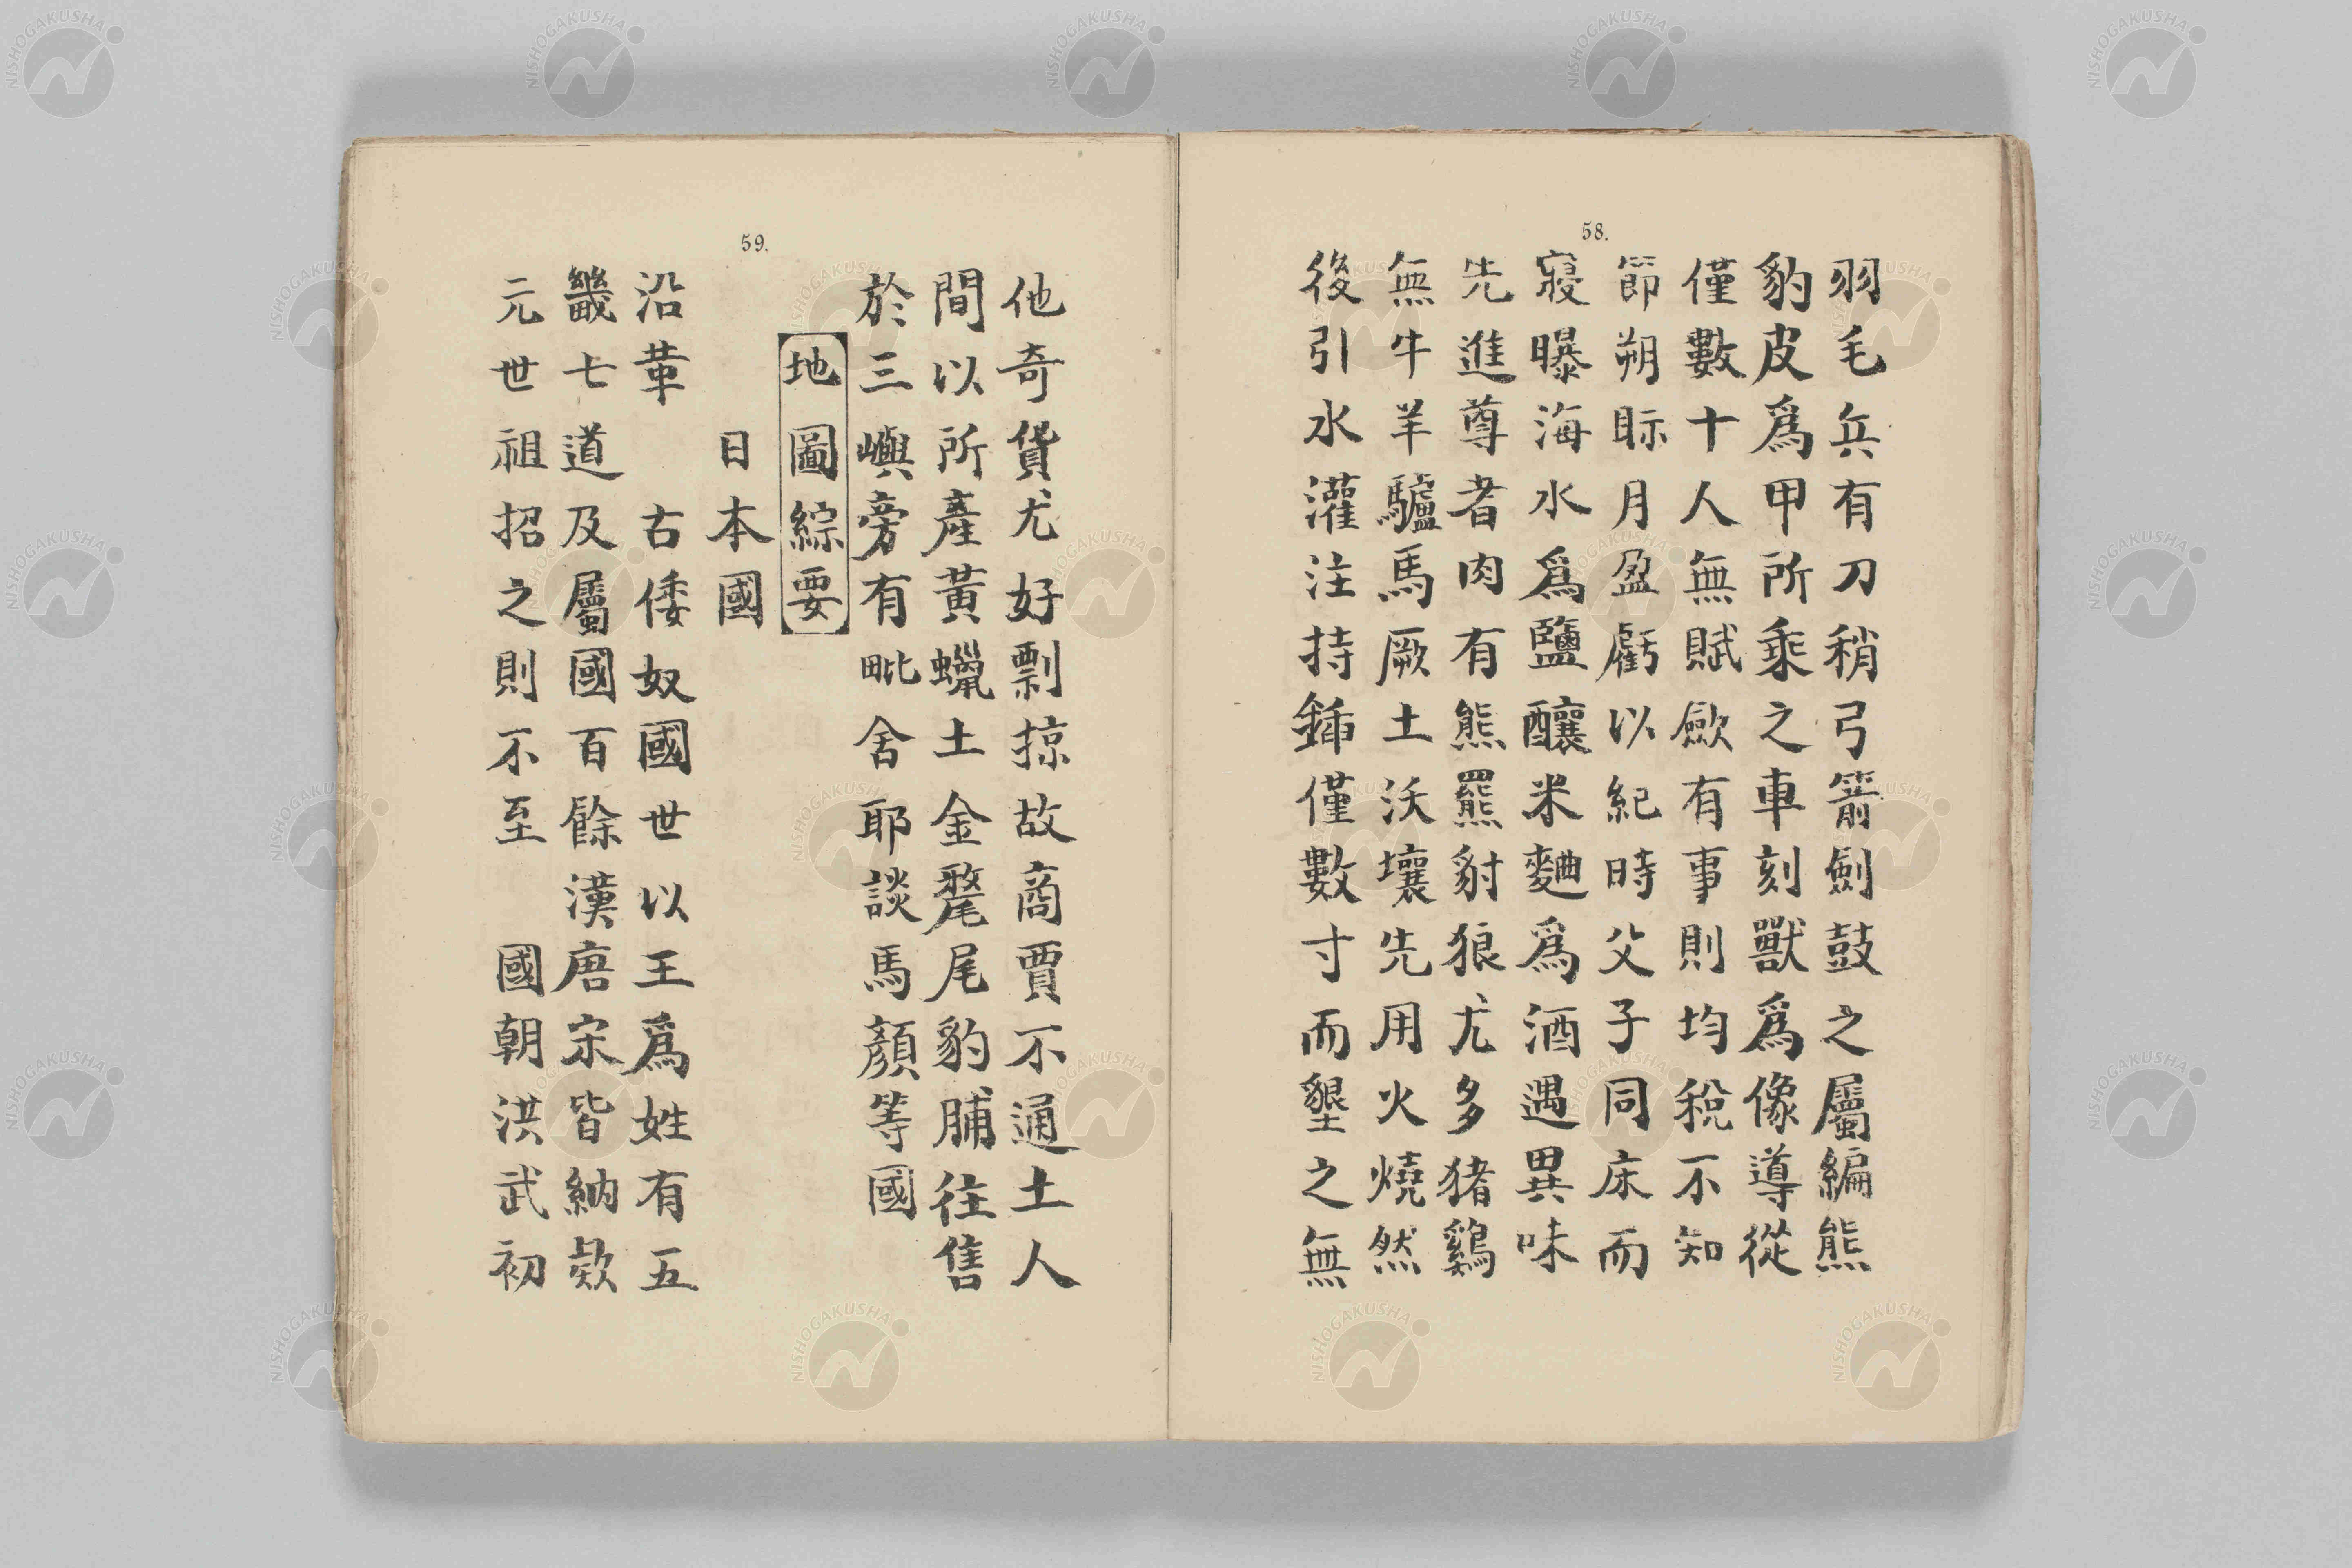 58.
羽毛兵有刀稍弓箭劍鼓之屬編熊
豹皮爲甲所乘之車刻獸爲像導從
僅數十人無賦歛有事則均稅不知
節朔眎月盈虧以紀時父子同床而
寢曝海水爲鹽釀米麯爲酒遇異味
先進尊者肉有熊羆豺狼尤多猪鷄
無牛羊驢馬厥土沃壤先用火燒然
後引水灌注持鍤僅數寸而墾之無
59.
他奇貨尤好剽掠故商賈不通土人
間以所產黃蠟土金氂尾豹脯往售
於三嶼旁有毗舍耶談馬顏等國
地圖綜要
日本國
沿革 古倭奴國世以王爲姓有五
畿七道及屬國百餘漢唐宋皆納欵
元世祖招之則不至 國朝洪武初
NISHOGAKUSHA